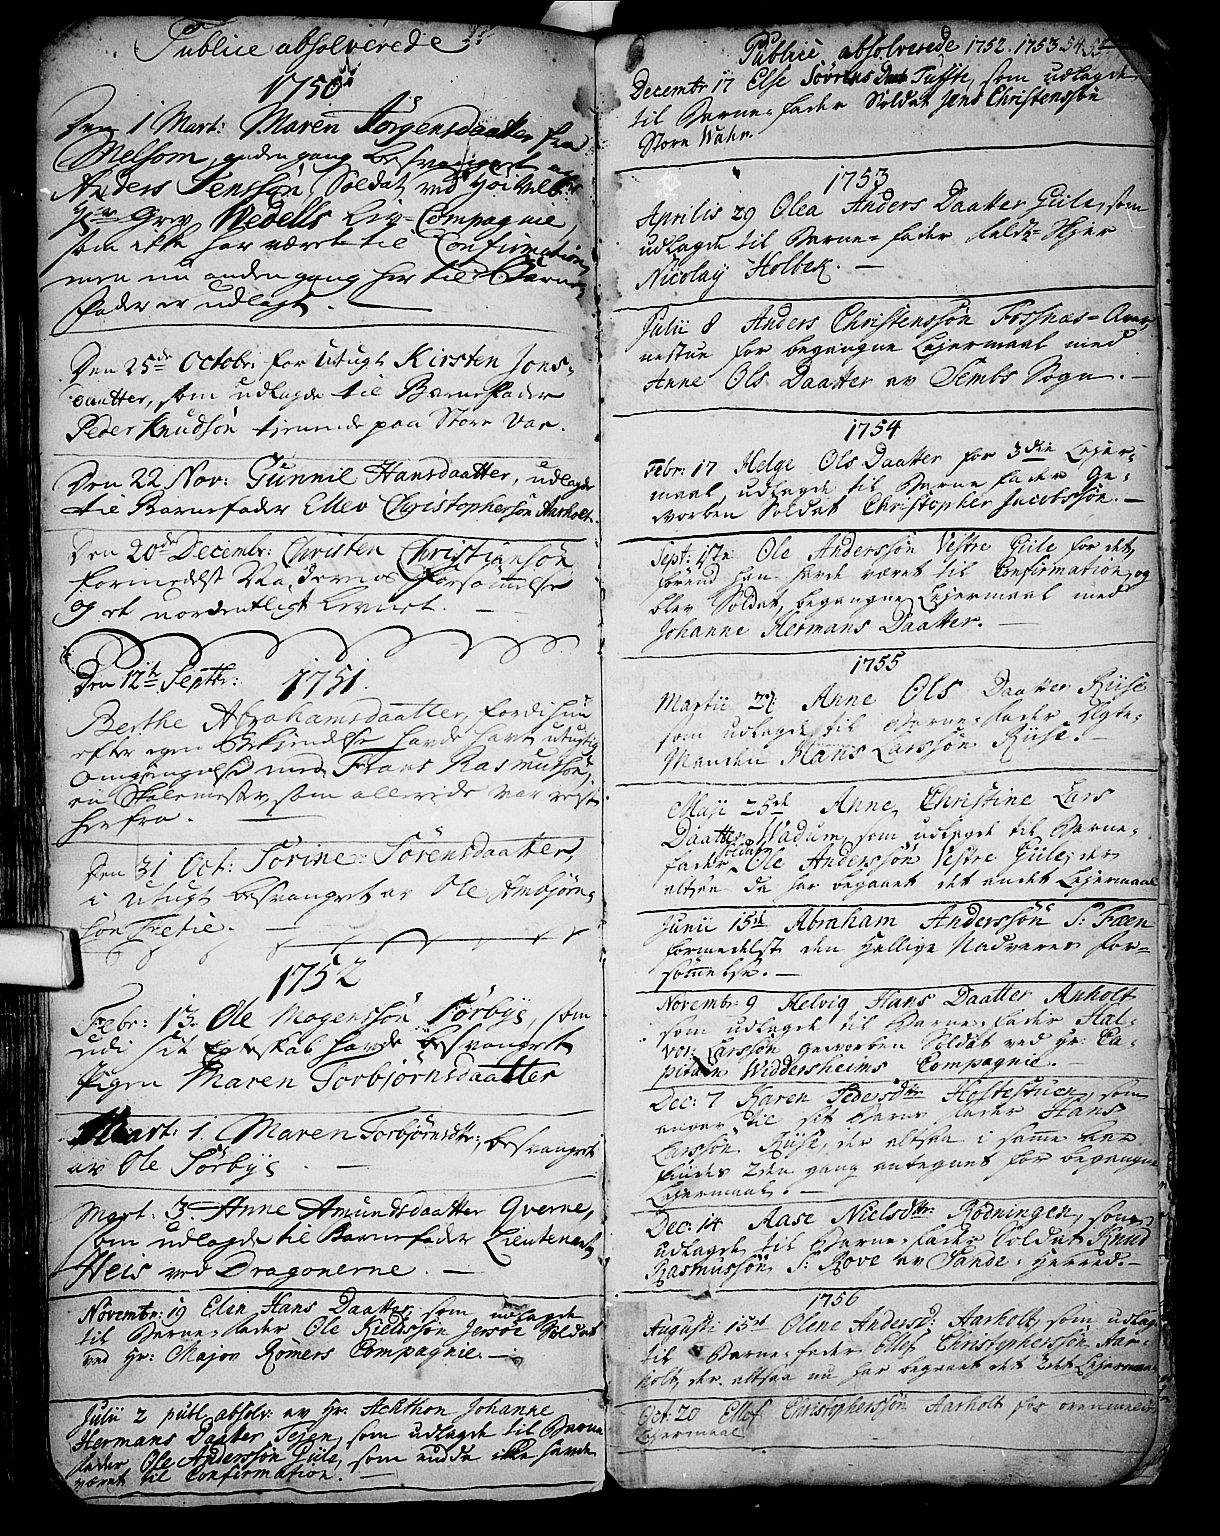 Publice absolverede
1750
Den 1 Mart: Maren Jörgensdaatter fra
Melsom, anden gang besvangret av
Anders Jenssön Soldat ved Höivelb:
Hr Grev Wedells Liv-Compagnie,
som ikke har været til Confirmation,
men nu anden gang her til Barne-
fader er udlagt.
Den 25de Octobr: for Utugt Kirsten Jons-
daatter, som udlagde til Barnefader
Peder Knudsön tienende paa Store Var.
Den 22 Nov: Gunnil Hansdaatter, udlagde
til Barnefader Ellev Christophersön Aarholt.
Den 20de Decembr: Christen Christiansön
formedelst Naadernes Forsömmelse
og et uordentligt Levnet.
Den 12te Septbr: 1751.
Berthe Abrahamsdaatter, fordi hun
efter egen Bekiendelse havde havt utugtig
Omgiengelse med Frans Rasmussön,
en Skolemester, som allerede var reist
herfra.
Den 31 Oct: Sörine Sörensdaatter,
i Utugt besvangret av Ole Ambjörn-
sön Tretie.
1752
Febr: 13. Ole Mogenssön Sörbye, som
udi sit Egteskab havde besvangret
Pigen Maren Torbjörnsdaatter
Mart: 1. Maren Torbjörnsdtr:, besvangret
av Ole Sörbye
Mart: 3. Anne Amundsdaatter Qverne,
som udlagde til Barnefader Lieutenant
Heis ved Dragonerne.
Novembr: 19 Elin Hans Daatter, som udlagde
til Barne-fader Ole Kieldssön Jersöe Soldat
ved Hr: Major Römers Compagnie.
Julii 2 publ. absolv: av Hr: Achthon Johanne
Hermans Daatter Tejen, som udlagde til Barne
fader Ole Anderssön Giile, som endda ikke havde
været til Confirmation.
Publice absolverede 1752. 1753. 54. 55.
Decembr 17 Else Sörens Dat Tuffte, som udlagde
til Barne-fader Soldat Jens Christenssön
Store Wahr.
1753
Aprilis 29 Olea Anders Daatter Giile, som
udlagde til Barne-fader Feldt-Skjer
Nicolay Holbek.
Julii 8 Anders Christenssön Fossnæs-Ovar-
nestue for begangne Lejermaal med
Anne Ols Daatter av Sembs Sogn.
1754
Febr: 17 Helge Ols Daatter for 3die Lejer-
maal, udlagde til Barne fader Ge-
worben Soldat Christopher Jacobssön.
Sept: 17 Ole Anderssön Vestre Giile for det
förend han havde været til Confirmation, og
blev Soldat, begangne Lejermaal med
Johanne Hermans Daatter.
1755
Martii 27 Anne Ols Daatter Riise
som udlagde til Barne-fader Egte-
Manden Hans Larssön Riise.
Maji 25de Anne Christine Lars
Daatter Wadum, som udlagde til Barne-
fader Soldat Ole Anderssön Vestre Giile; der
altsaa da har begaaet det andet Lejermaal
Junii 15de Abraham Anderssön S: Fæen
formedelst den hellige Nadveres For-
sömmelse.
Novembr: 9 Helvig Hans Daatter Anholt
som udlagde til Barne-fader Hal-
vor Larssön geworben Soldat ved Hr: Ca-
pitain Widdersheims Compagnie.
Dec: 7 Karen Pedersdtr Hestestuen, som
til sit Barns fader Hans
Larssön Riise, der altsaa i samme Aar
findes 2den gang antegnet for begangne
Lejermaal.
Dec: 14 Aase Nielsdtr: Rödningen, som
udlagde til Barne-fader Soldat Knud
Rasmussön S: Rove av Sande-Herred.
1756
Augusti 15de Olene Andersd: Aarholt, som udlagde
til Barne-fader Ellef Christopherssön Aar-
holt, der altsaa nu har begaaet det 3det Lejermaal
Oct: 20 Ellef Christopherssön Aarholt for ovenmeldte
Lejermaal